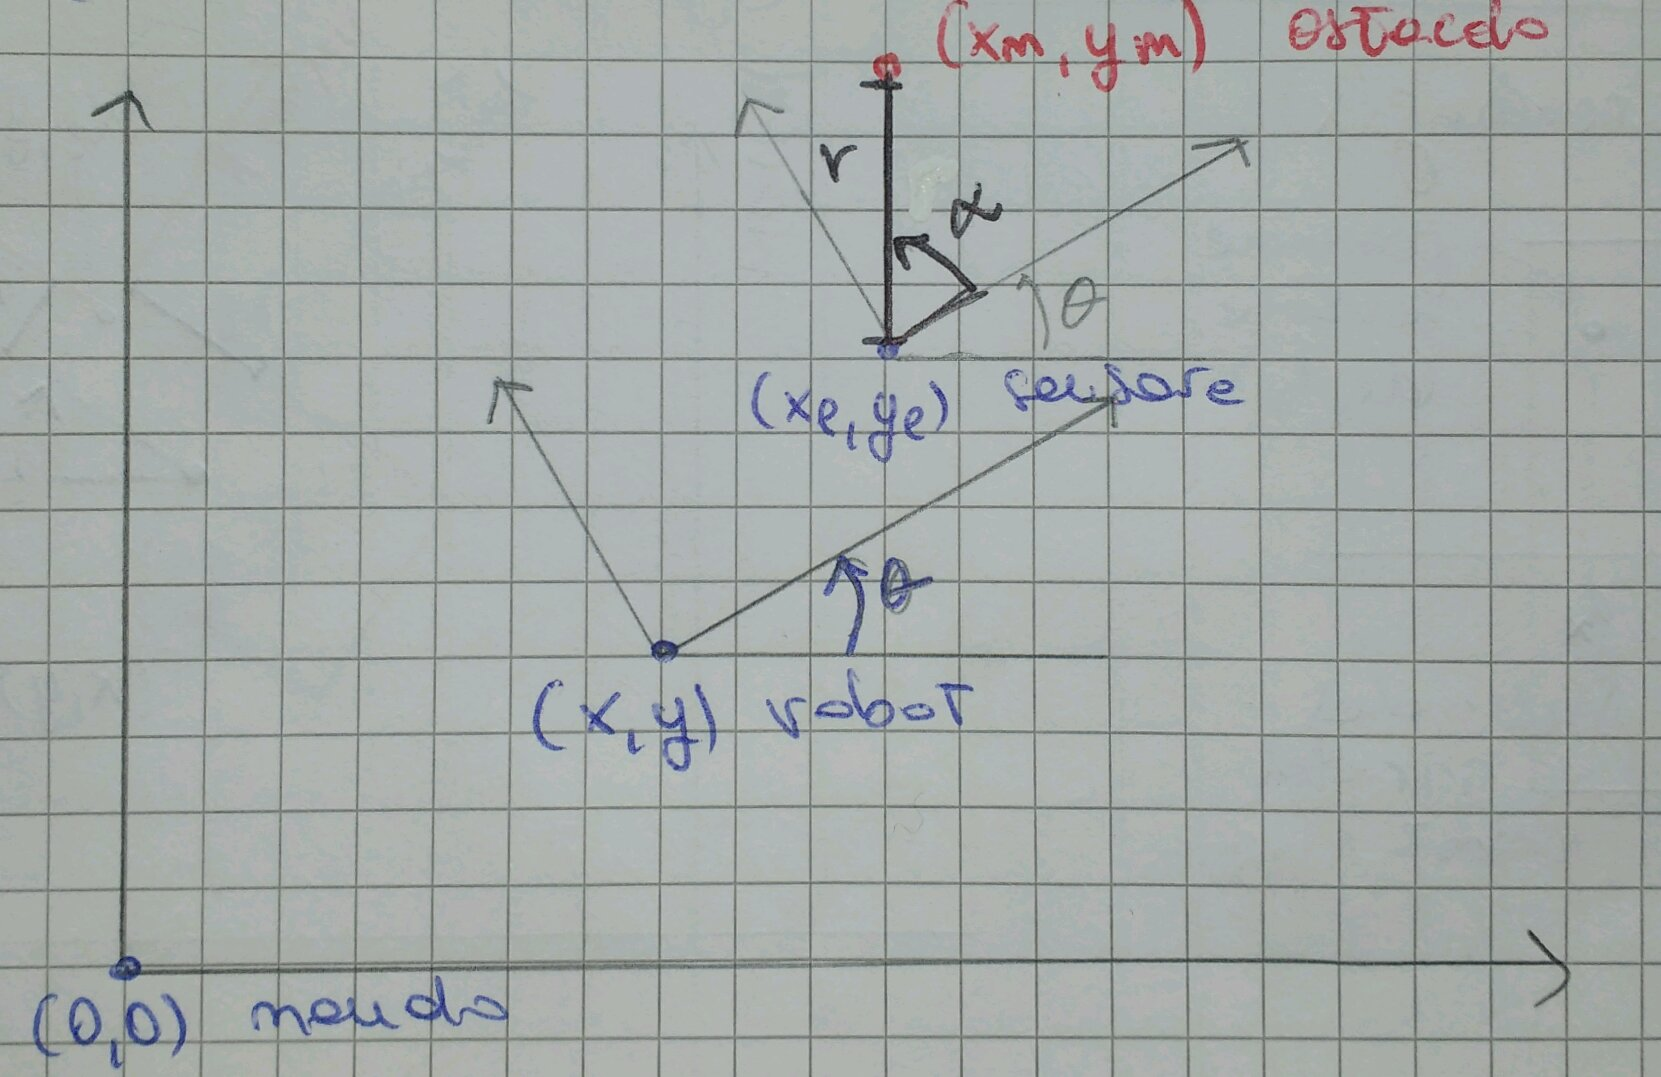 (xm, ym) ostacolo
r
α
θ
(xe, ye) sensore
θ
(x, y) robot
(0,0) mondo